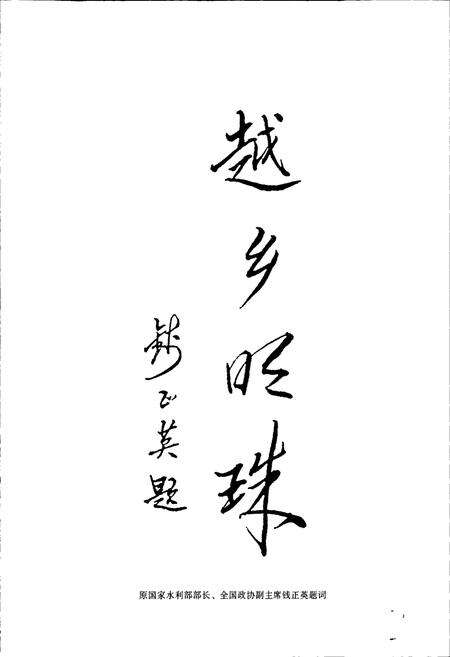 越乡明珠
钱正英题
原国家水利部部长、全国政协副主席钱正英题词